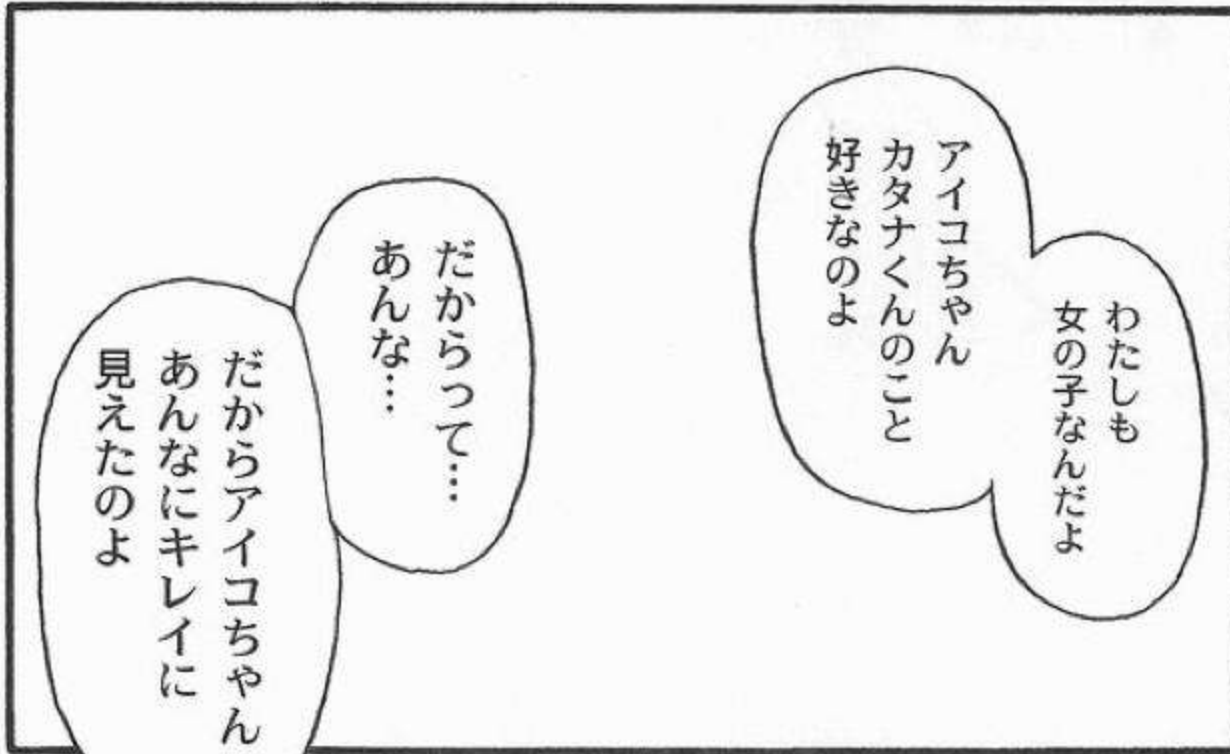 わたしも
女の子なんだよ
アイコちゃん
カタナくんのこと
好きなのよ
だからって…
あんな…
だからアイコちゃん
あんなにキレイに
見えたのよ